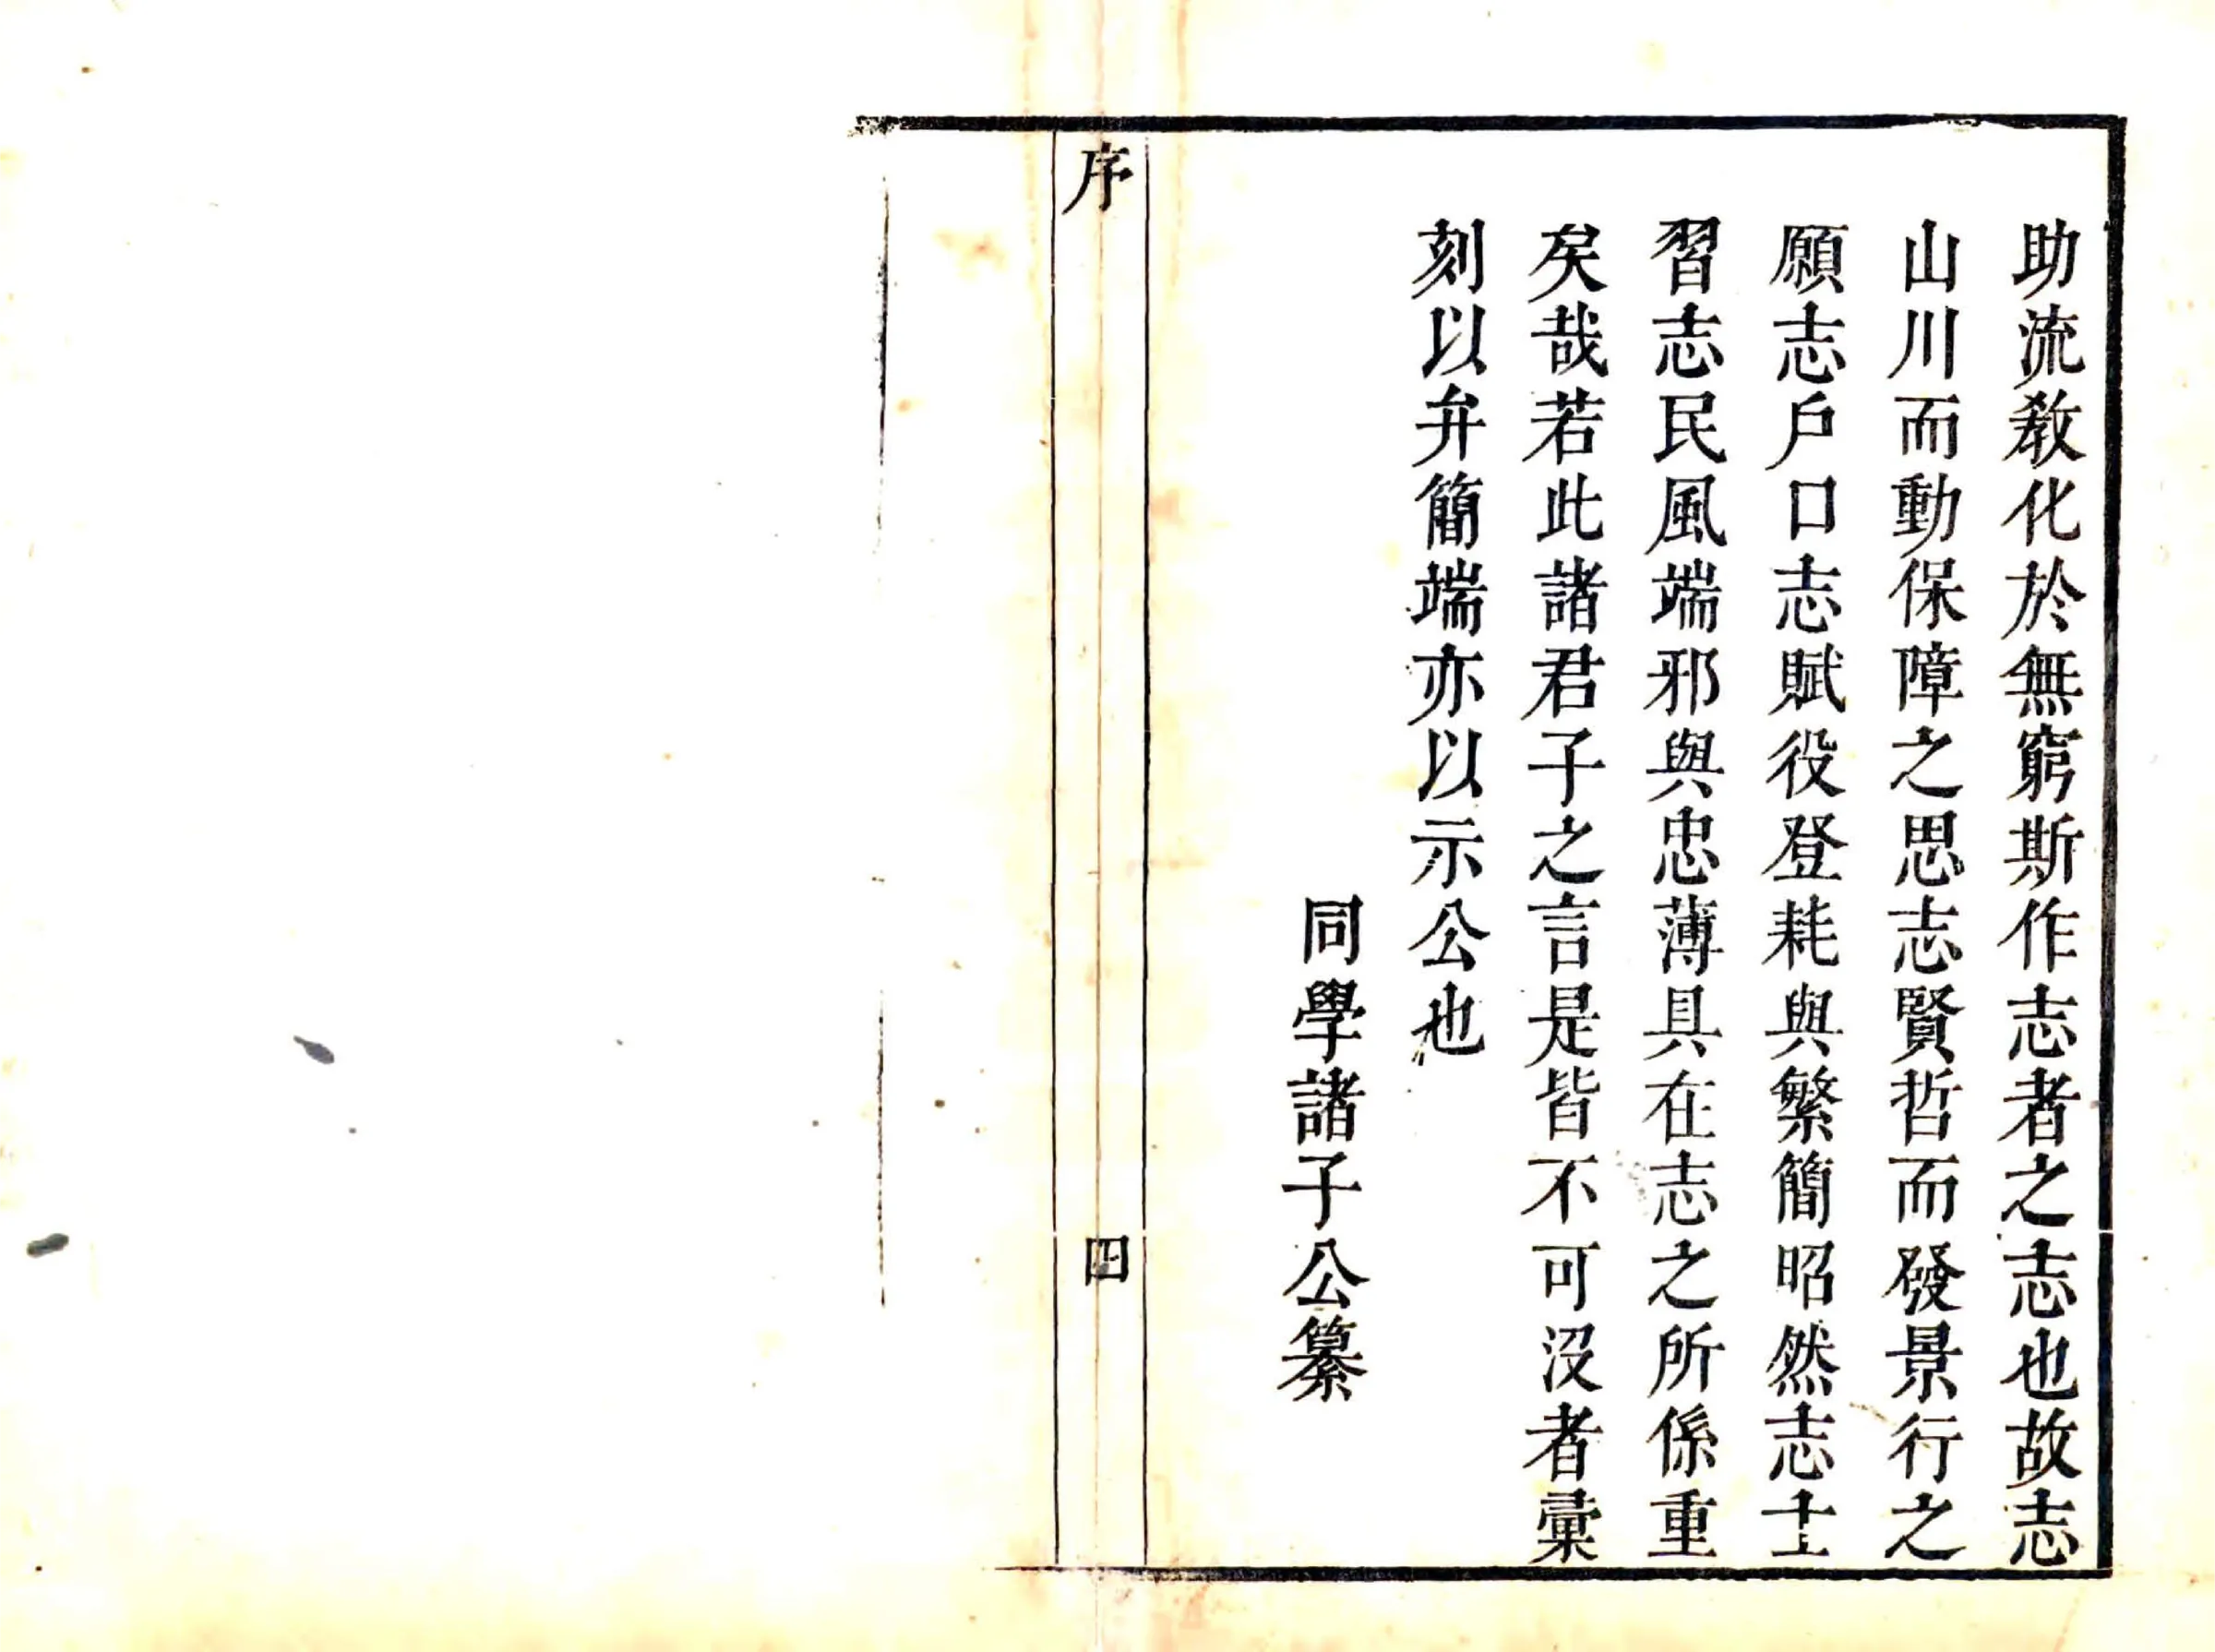 助流教化於無窮斯作志者之志也故志
山川而動保障之思志賢哲而發景行之
願志戶口志賦役登耗與繁簡昭然志士
習志民風端邪與忠薄具在志之所係重
矣哉若此諸君子之言是皆不可没者彙
刻以弁簡端亦以示公也
同學諸子公纂
序
四